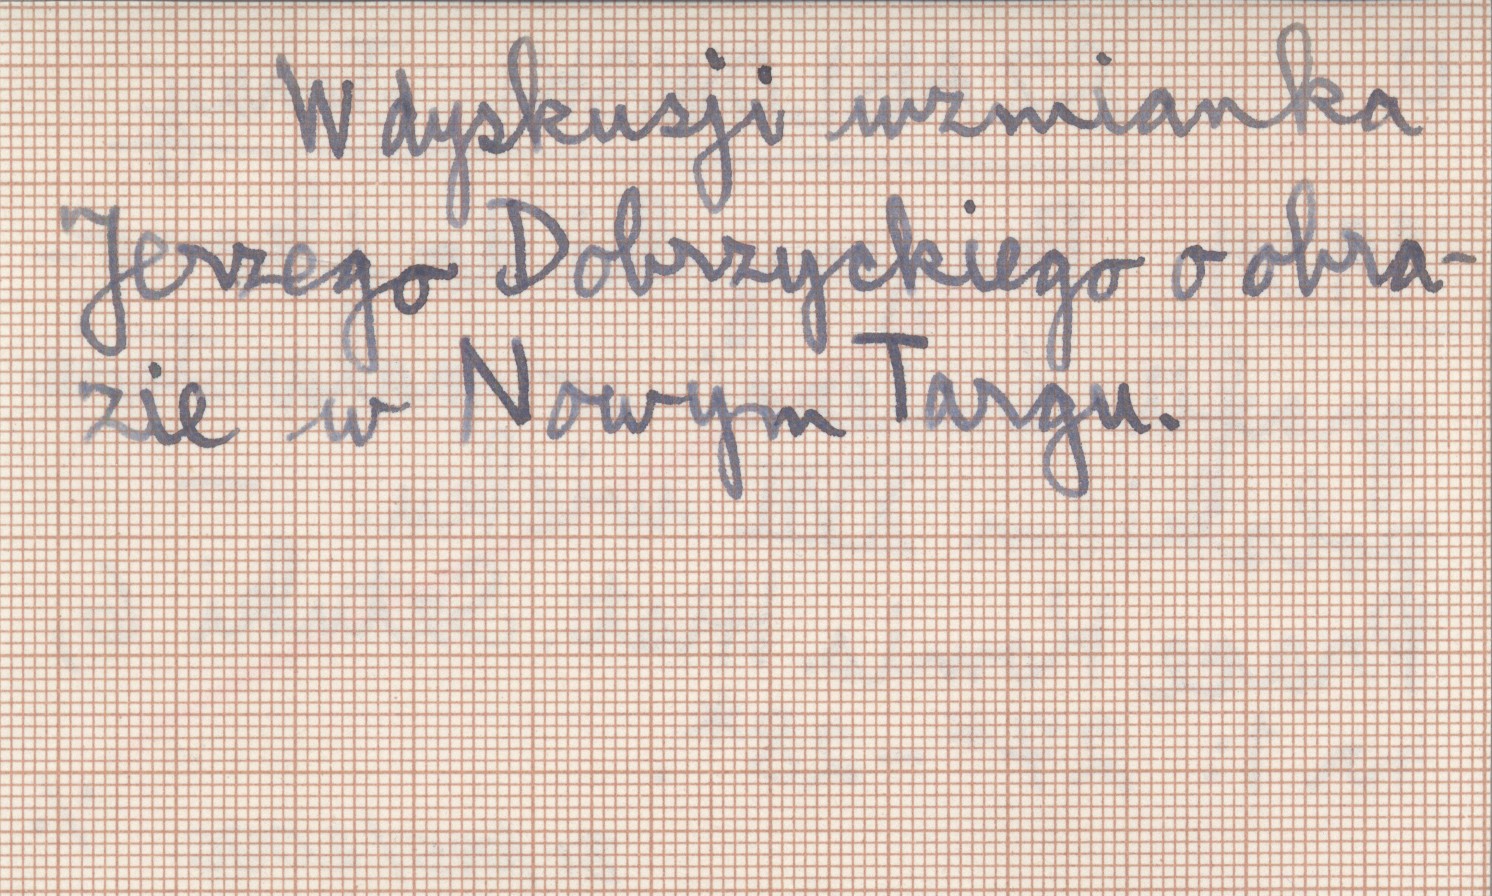 W dyskusji wzmianka
Jerzego Dobrzyckiego o obra-
zie w Nowym Targu.